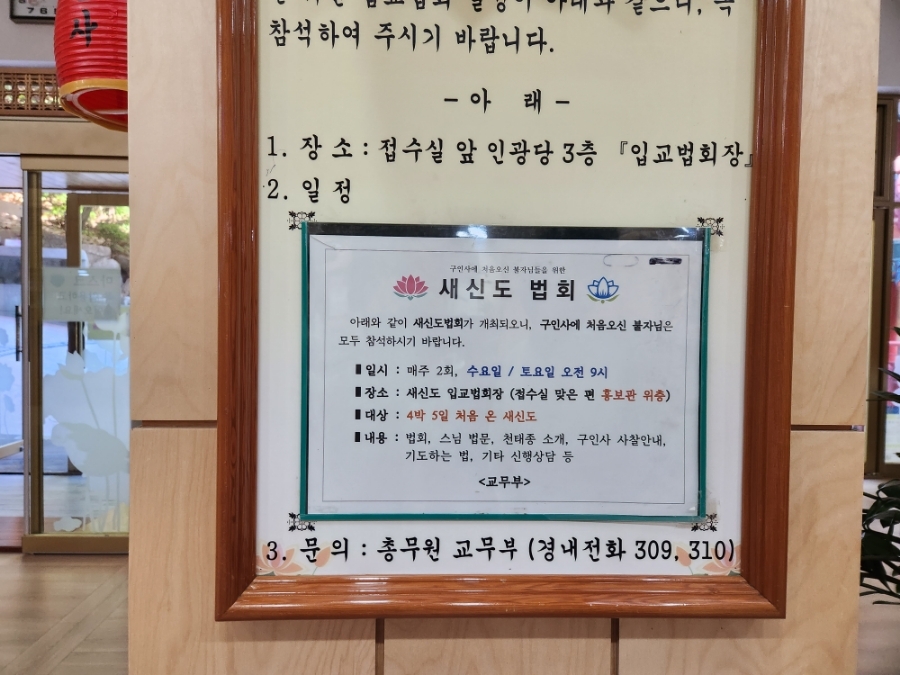 사
참석하여 주시기 바랍니다.
- 아 래 -
1. 장 소 : 접수실 앞 인광당 3층 『입교법회장』
2. 일 정
구인사에 처음오신 불자님들을 위한
새신도 법회
아래와 같이 새신도법회가 개최되오니, 구인사에 처음오신 불자님은
모두 참석하시기 바랍니다.
일시 : 매주 2회, 수요일 / 토요일 오전 9시
장소 : 새신도 입교법회장 (접수실 맞은 편 홍보관 위층)
대상 : 4박 5일 처음 온 새신도
내용 : 법회, 스님 법문, 천태종 소개, 구인사 사찰안내,
기도하는 법, 기타 신행상담 등
<교무부>
3. 문 의 : 총무원 교무부 (경내전화 309, 310)